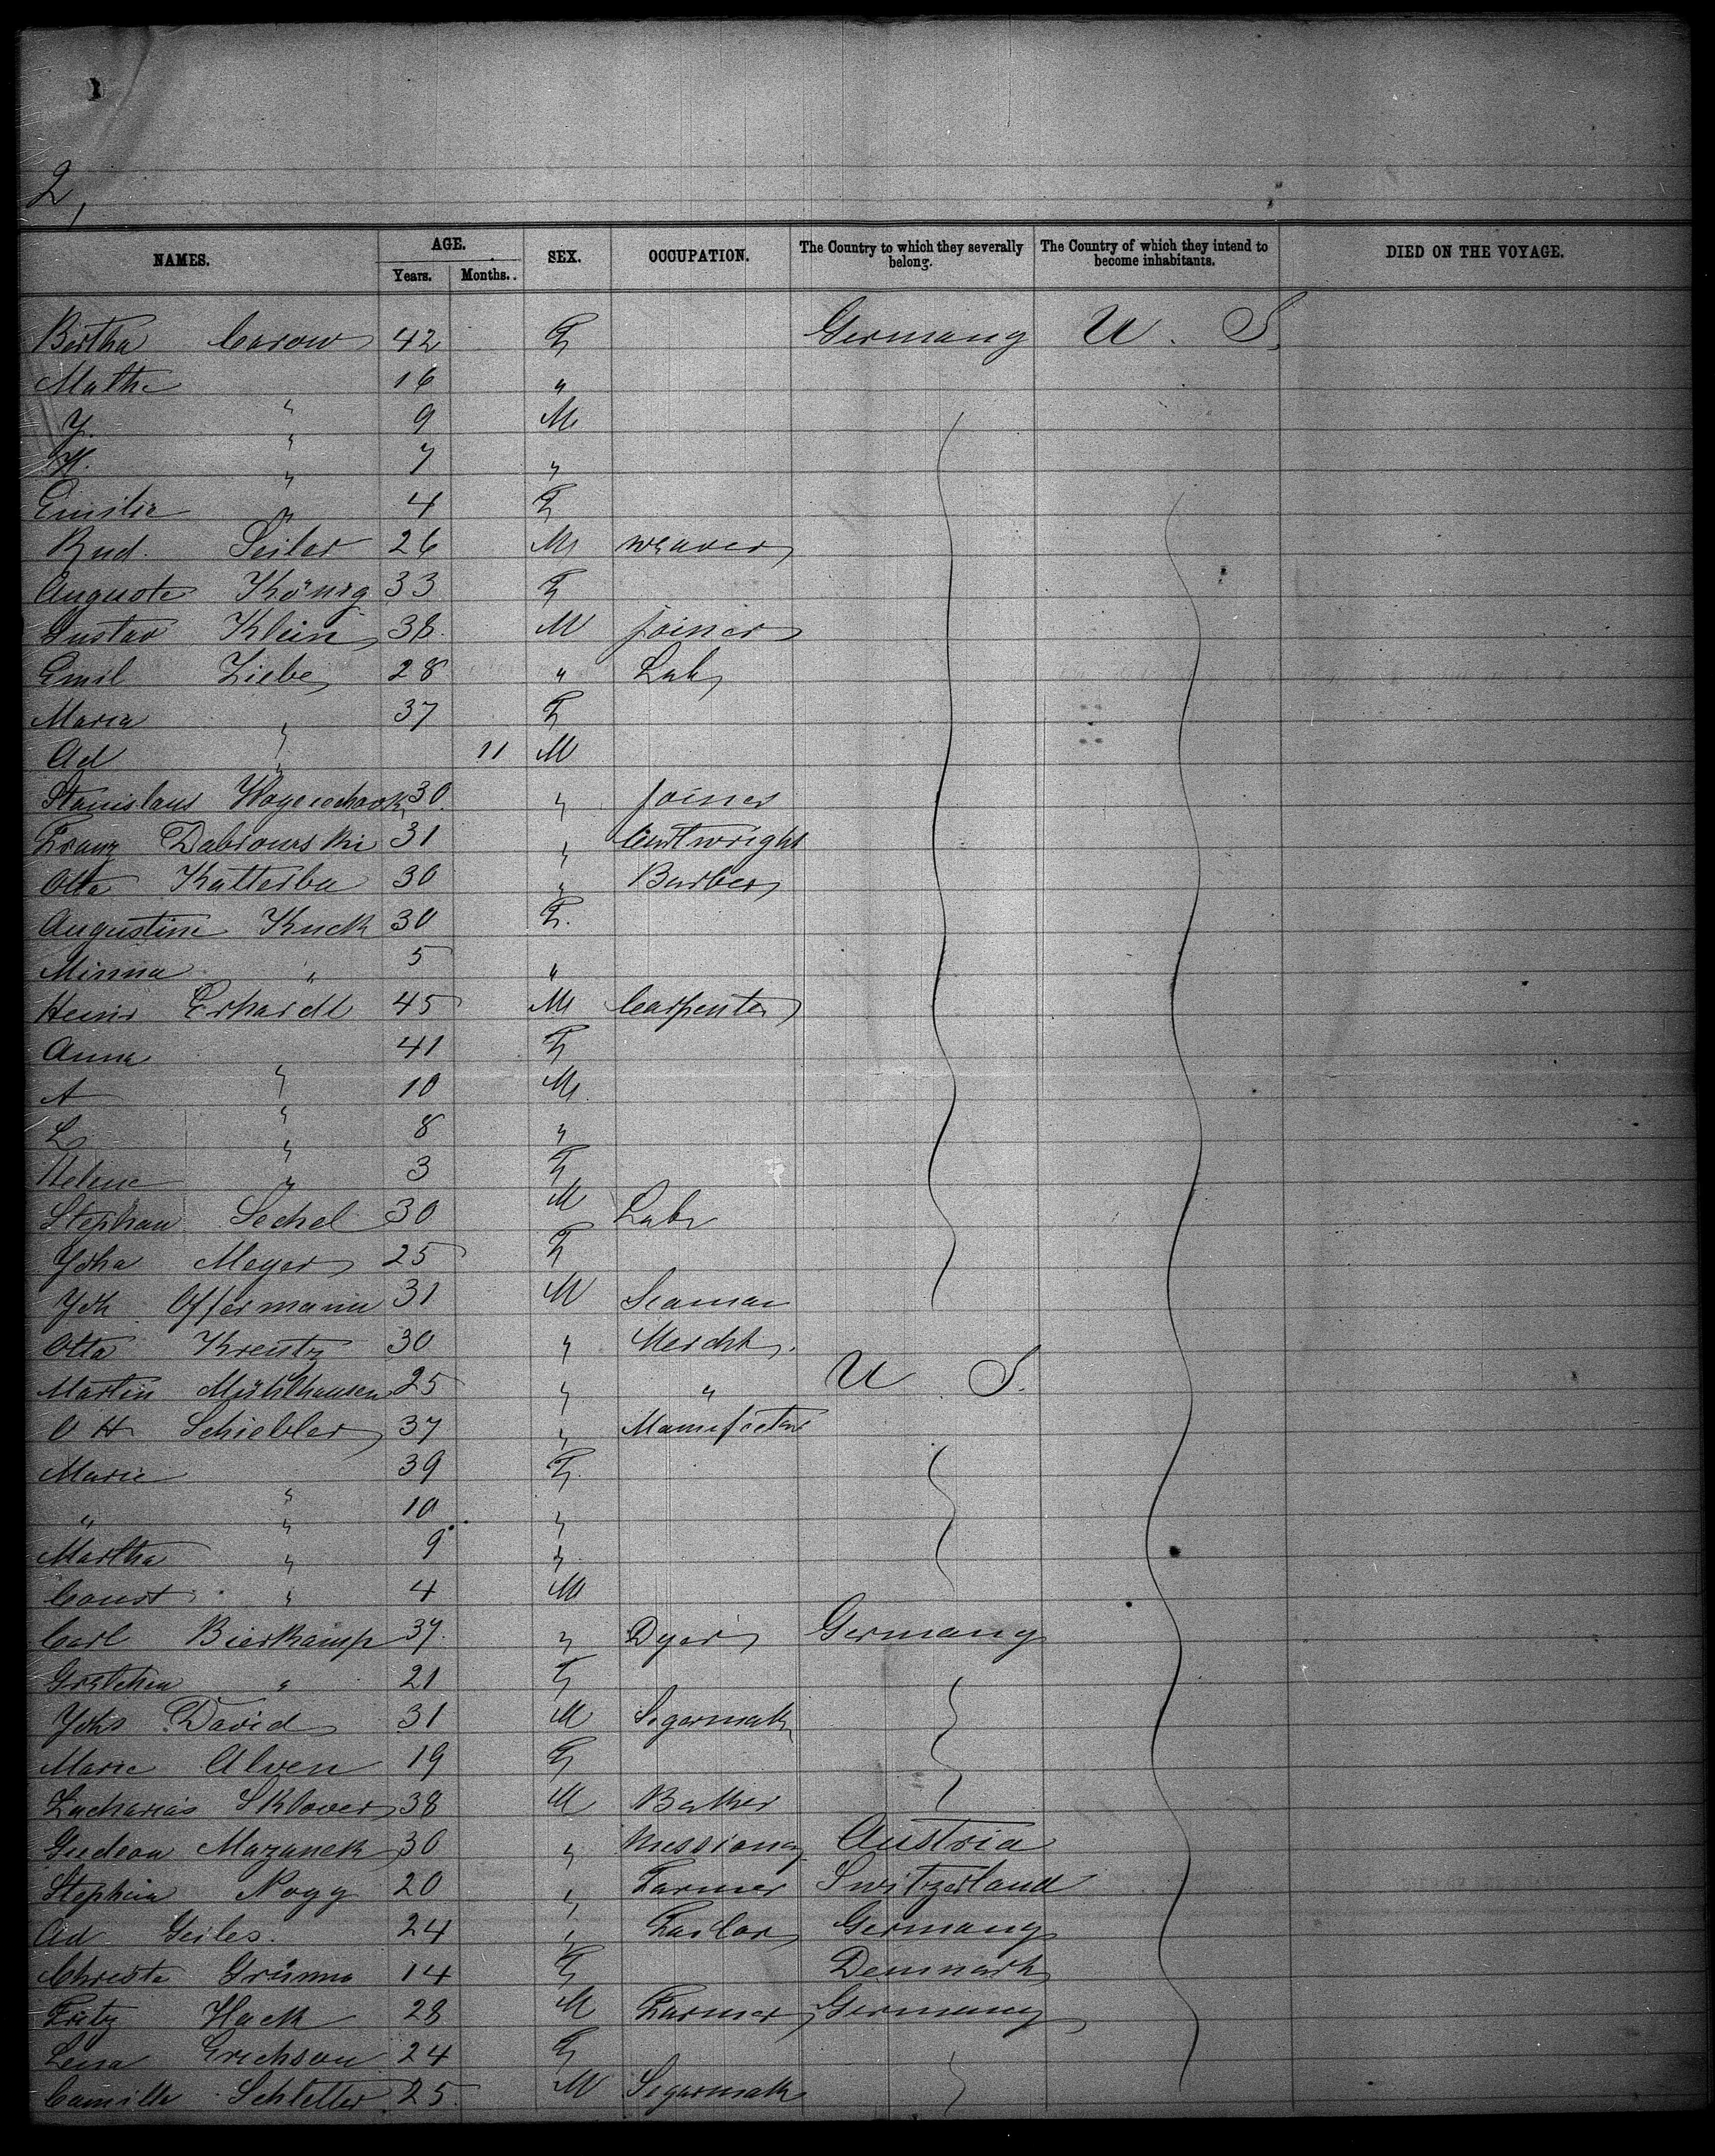 2,
NAMES. AGE. SEX. OCCUPATION. The Country to which they severally belong. The Country of which they intend to become inhabitants. DIED ON THE VOYAGE.
Years. Months.
Bertha Carow 42 F Germany U. S.
Mathe " 16 "
J. " 9 M
H. " 7 "
Emilie " 4 F
Rud. Seiler 26 M weaver
Auguste König 33 F
Gustav Klein 38 M joiner
Emil Ziebe 28 " Lab
Maria " 37 F
Ad " 11 M
Stanislaus 30 " joiner
Franz Dabrowski 31 "
Otto Katterba 30 " Barber
Augustine Kuck 30 F.
Minna " 5 "
Heinr Erhardt 45 M Carpenter
Anna " 41 F
A " 10 M
L " 8 "
Helene " 3 F
Stephan Sechel 30 M Labr
Joha Meyer 25 F
Joh Offermann 31 M Seaman
Otto Kreutz 30 " Mercht.
Martin Mühlhausen 25 " " U. S.
O H Schiebler 37 " Manufactur
Marie " 39 F.
" " 10 "
Martha " 9 "
Const " 4 M
Carl Bierkamp 37 " Dyer Germany
Gretchen " 21 F
Johs David 31 M Segarmak
Marie Alven 19 F
Zacharias Sklover 38 M Baker
Gedeon Mazanek 30 " Missionay Austria
Stephan Nogg 20 " Farmer Switzerland
Ad Geiles. 24 " Tailor Germany
Christe Grümm 14 F Denmark
Fritz Hack 28 M Farmer Germany
Lena Erichson 24 F
Camille Schletter 25 M Segarmak